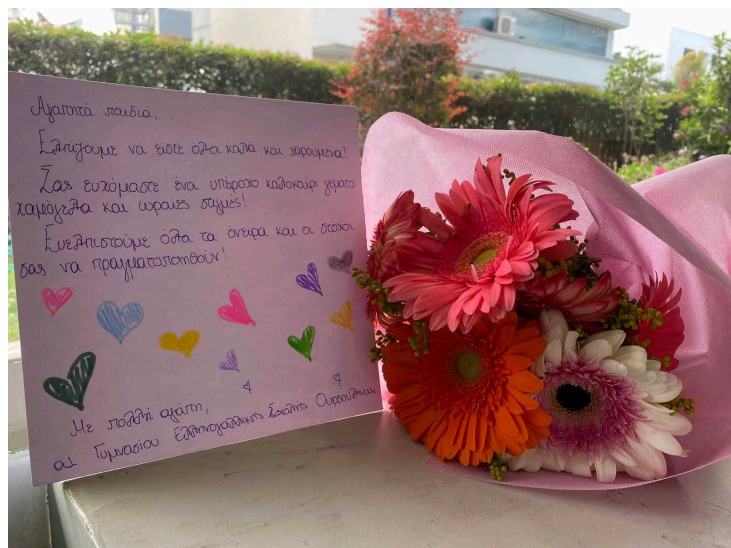 Αγαπητά παιδιά,
Ελπίζουμε να είστε όλα καλά και χαρούμενα!
Σας ευχόμαστε ένα υπέροχο καλοκαίρι γεμάτο
χαμόγελα και ωραίες στιγμές!
Ευελπιστούμε όλα τα όνειρα και οι στόχοι
σας να πραγματοποιηθούν!
Με πολλή αγάπη,
α1 Γυμνασίου Ελληνογαλλικής Σχολής Ουρσουλινών